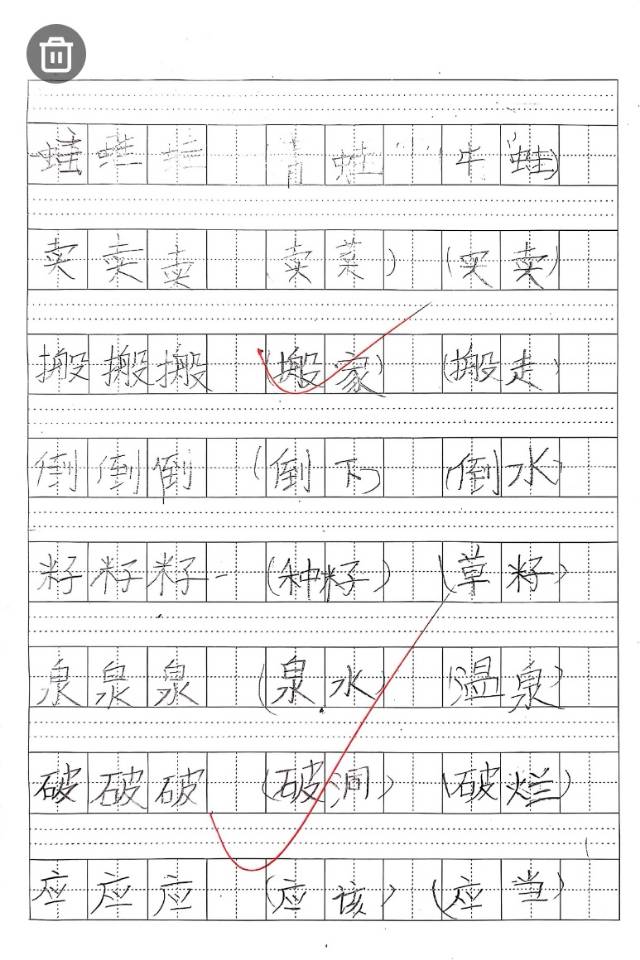 蛙 蛙 蛙 青 蛙 牛 蛙)
卖 卖 卖 卖 菜 ) (买 卖)
搬 搬 搬 (搬 家) (搬 走)
倒 倒 倒 (倒 下) (倒 水)
籽 籽 籽 (种 籽) (草 籽)
泉 泉 泉 (泉 水) (温 泉)
破 破 破 (破 洞) (破 烂)
应 应 应 (应 该) (应 当)